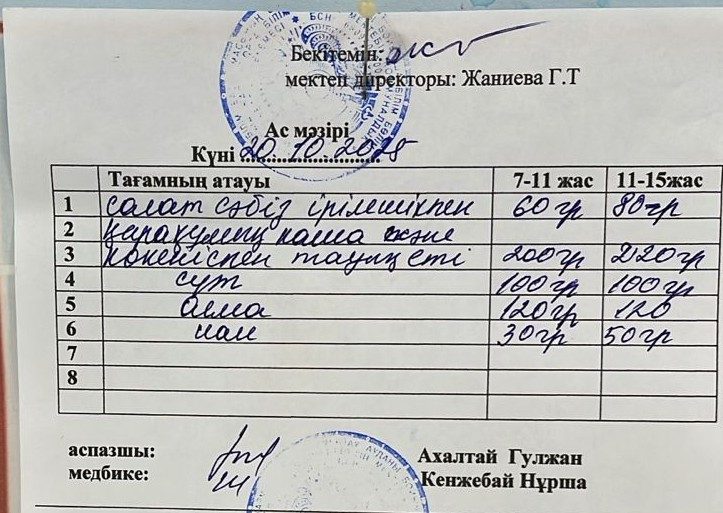 Бекітемін:
мектеп директоры: Жаниева Г.Т
Ас мәзірі
Күні 20.10.2025
Тағамның атауы 7-11 жас 11-15жас
1 салат сәбіз ірімшікпен 60гр 80гр
2 қарақұмық каша және
3 көкөніспен тауық еті 200гр 220гр
4 сүт 100гр 100гр
5 алма 120гр 120
6 нан 30гр 50гр
7
8
аспазшы: Ахалтай Гулжан
медбике: Кенжебай Нұрша